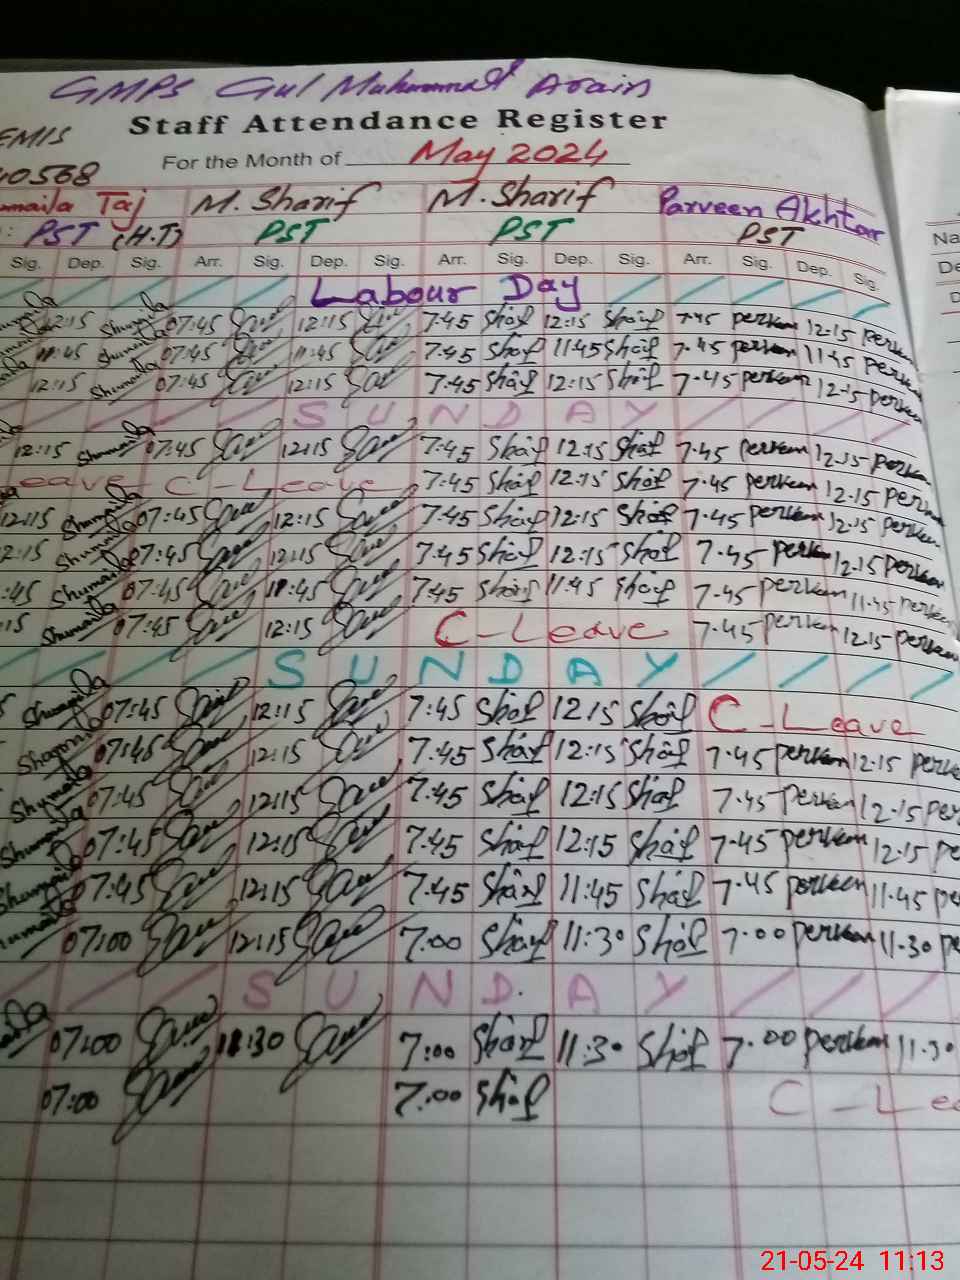 GMPS Gul Muhammad Arain
Staff Attendance Register
EMIS
For the Month of May 2024
40568
maila Taj M. Sharif M. Sharif Parveen Akhtar
PST (H.T) PST PST PST
Sig. Dep. Sig. Arr. Sig. Dep. Sig. Arr. Sig. Dep. Sig. Arr. Sig. Dep. Sig.
Labour Day
12:15 Shumaila 07:45 12:15 7:45 Sharif 12:15 Sharif 7.45 perveen 12.15 perveen
11:45 Shumaila 07:45 11:45 7:45 Sharif 11:45 Sharif 7.45 perveen 11.45 perveen
12:15 Shumaila 07:45 12:15 7:45 Sharif 12:15 Sharif 7.45 perveen 12.15 perveen
SUNDAY
12:15 Shumaila 07:45 12:15 7:45 Sharif 12:15 Sharif 7.45 perveen 12.15 perveen
Leave C-Leave 7:45 Sharif 12:15 Sharif 7.45 perveen 12.15 perveen
12:15 Shumaila 07:45 12:15 7:45 Sharif 12:15 Sharif 7.45 perveen 12.15 perveen
2:15 Shumaila 07:45 12:15 7:45 Sharif 12:15 Sharif 7.45 perveen 12.15 perveen
:45 Shumaila 07:45 11:45 7:45 Sharif 11:45 Sharif 7.45 perveen 11.45 perveen
:15 Shumaila 07:45 12:15 C-Leave 7.45 perveen 12.15 perveen
SUNDAY
Shumaila 07:45 12:15 7:45 Sharif 12:15 Sharif C-Leave
Shumaila 07:45 12:15 7:45 Sharif 12:15 Sharif 7.45 perveen 12.15 perve
Shumaila 07:45 12:15 7:45 Sharif 12:15 Sharif 7.45 perveen 12.15 per
Shumaila 07:45 12:15 7:45 Sharif 12:15 Sharif 7.45 perveen 12.15 pe
Shumaila 07:45 12:15 7:45 Sharif 11:45 Sharif 7.45 perveen 11.45 pe
umaila 07:00 12:15 7:00 Sharif 11:30 Sharif 7.00 perveen 11.30 pe
SUNDAY
maila 07:00 11:30 7:00 Sharif 11:30 Sharif 7.00 perveen 11.30
07:00 7:00 Sharif C-Lea
Na
De
21-05-24 11:13